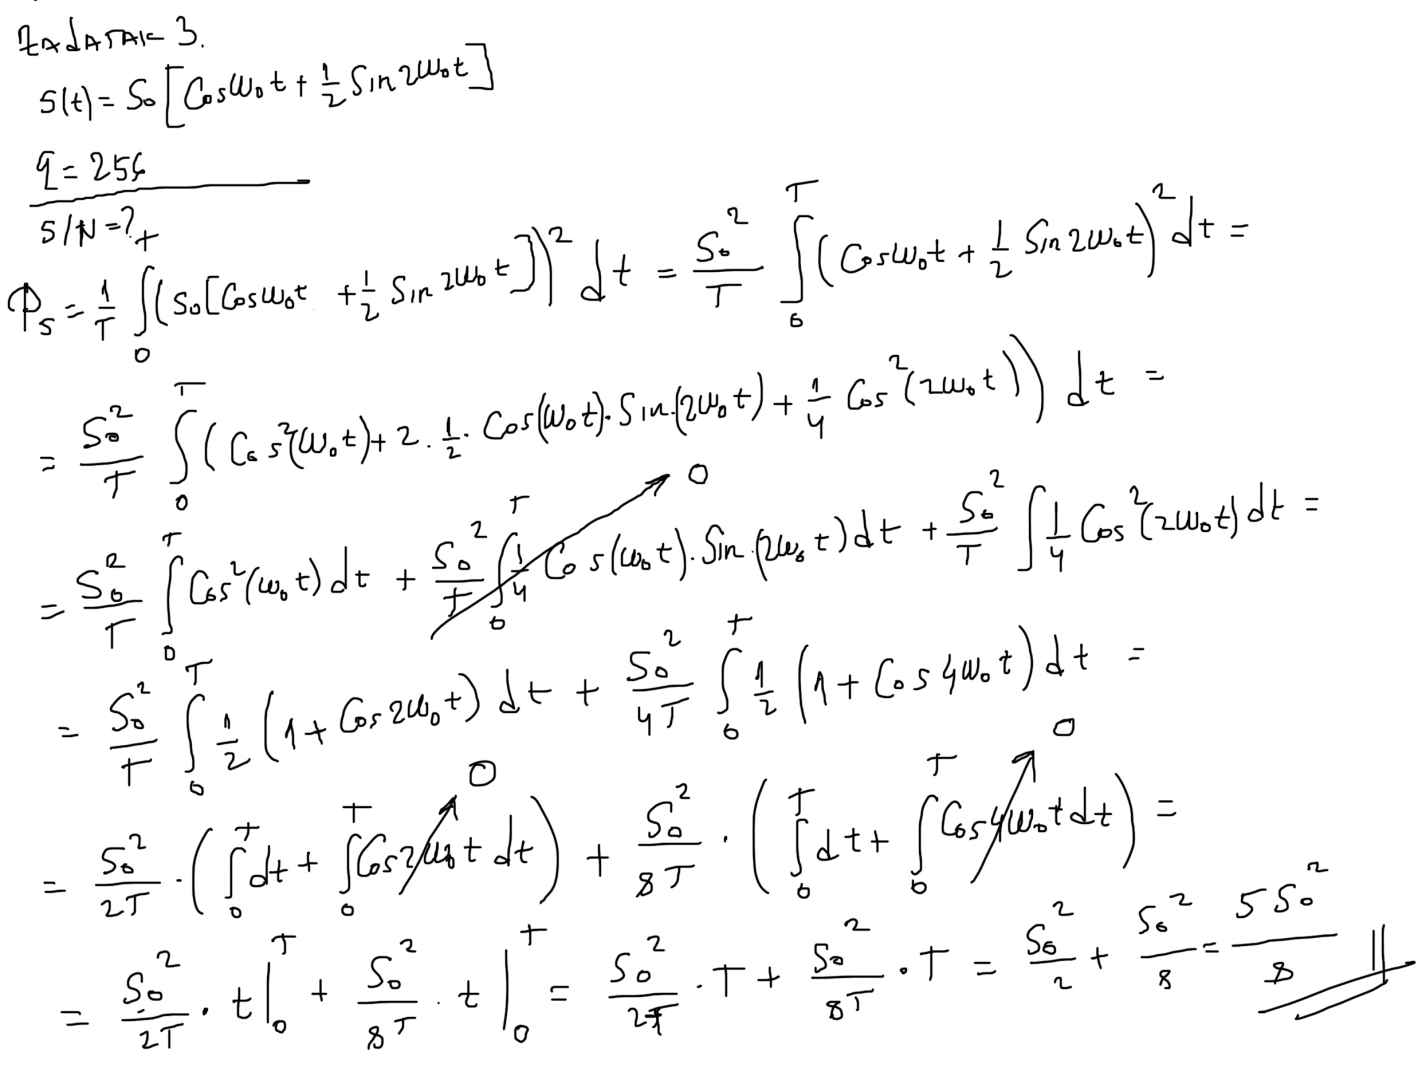 ZADATAK 3.
S(t) = S₀ [Cosω₀t + 1/2 Sin2ω₀t]
q = 256
S/N = ?
P_S = 1/T ∫₀ᵀ (S₀[Cosω₀t + 1/2 Sin2ω₀t])² dt = S₀²/T ∫₀ᵀ (Cosω₀t + 1/2 Sin2ω₀t)² dt =
= S₀²/T ∫₀ᵀ (Cos²(ω₀t) + 2 · 1/2 · Cos(ω₀t) · Sin(2ω₀t) + 1/4 Cos²(2ω₀t)) dt =
= S₀²/T ∫₀ᵀ Cos²(ω₀t) dt + S₀²/T ∫₀ᵀ 1/4 Cos(ω₀t) · Sin(2ω₀t) dt → 0 + S₀²/T ∫ 1/4 Cos²(2ω₀t) dt =
= S₀²/T ∫₀ᵀ 1/2 (1 + Cos2ω₀t) dt + S₀²/4T ∫₀ᵀ 1/2 (1 + Cos4ω₀t) dt =
= S₀²/2T · (∫₀ᵀ dt + ∫₀ᵀ Cos2ω₀t dt → 0) + S₀²/8T · (∫₀ᵀ dt + ∫₀ᵀ Cos4ω₀t dt → 0) =
= S₀²/2T · t|₀ᵀ + S₀²/8T · t|₀ᵀ = S₀²/2T · T + S₀²/8T · T = S₀²/2 + S₀²/8 = 5S₀²/8